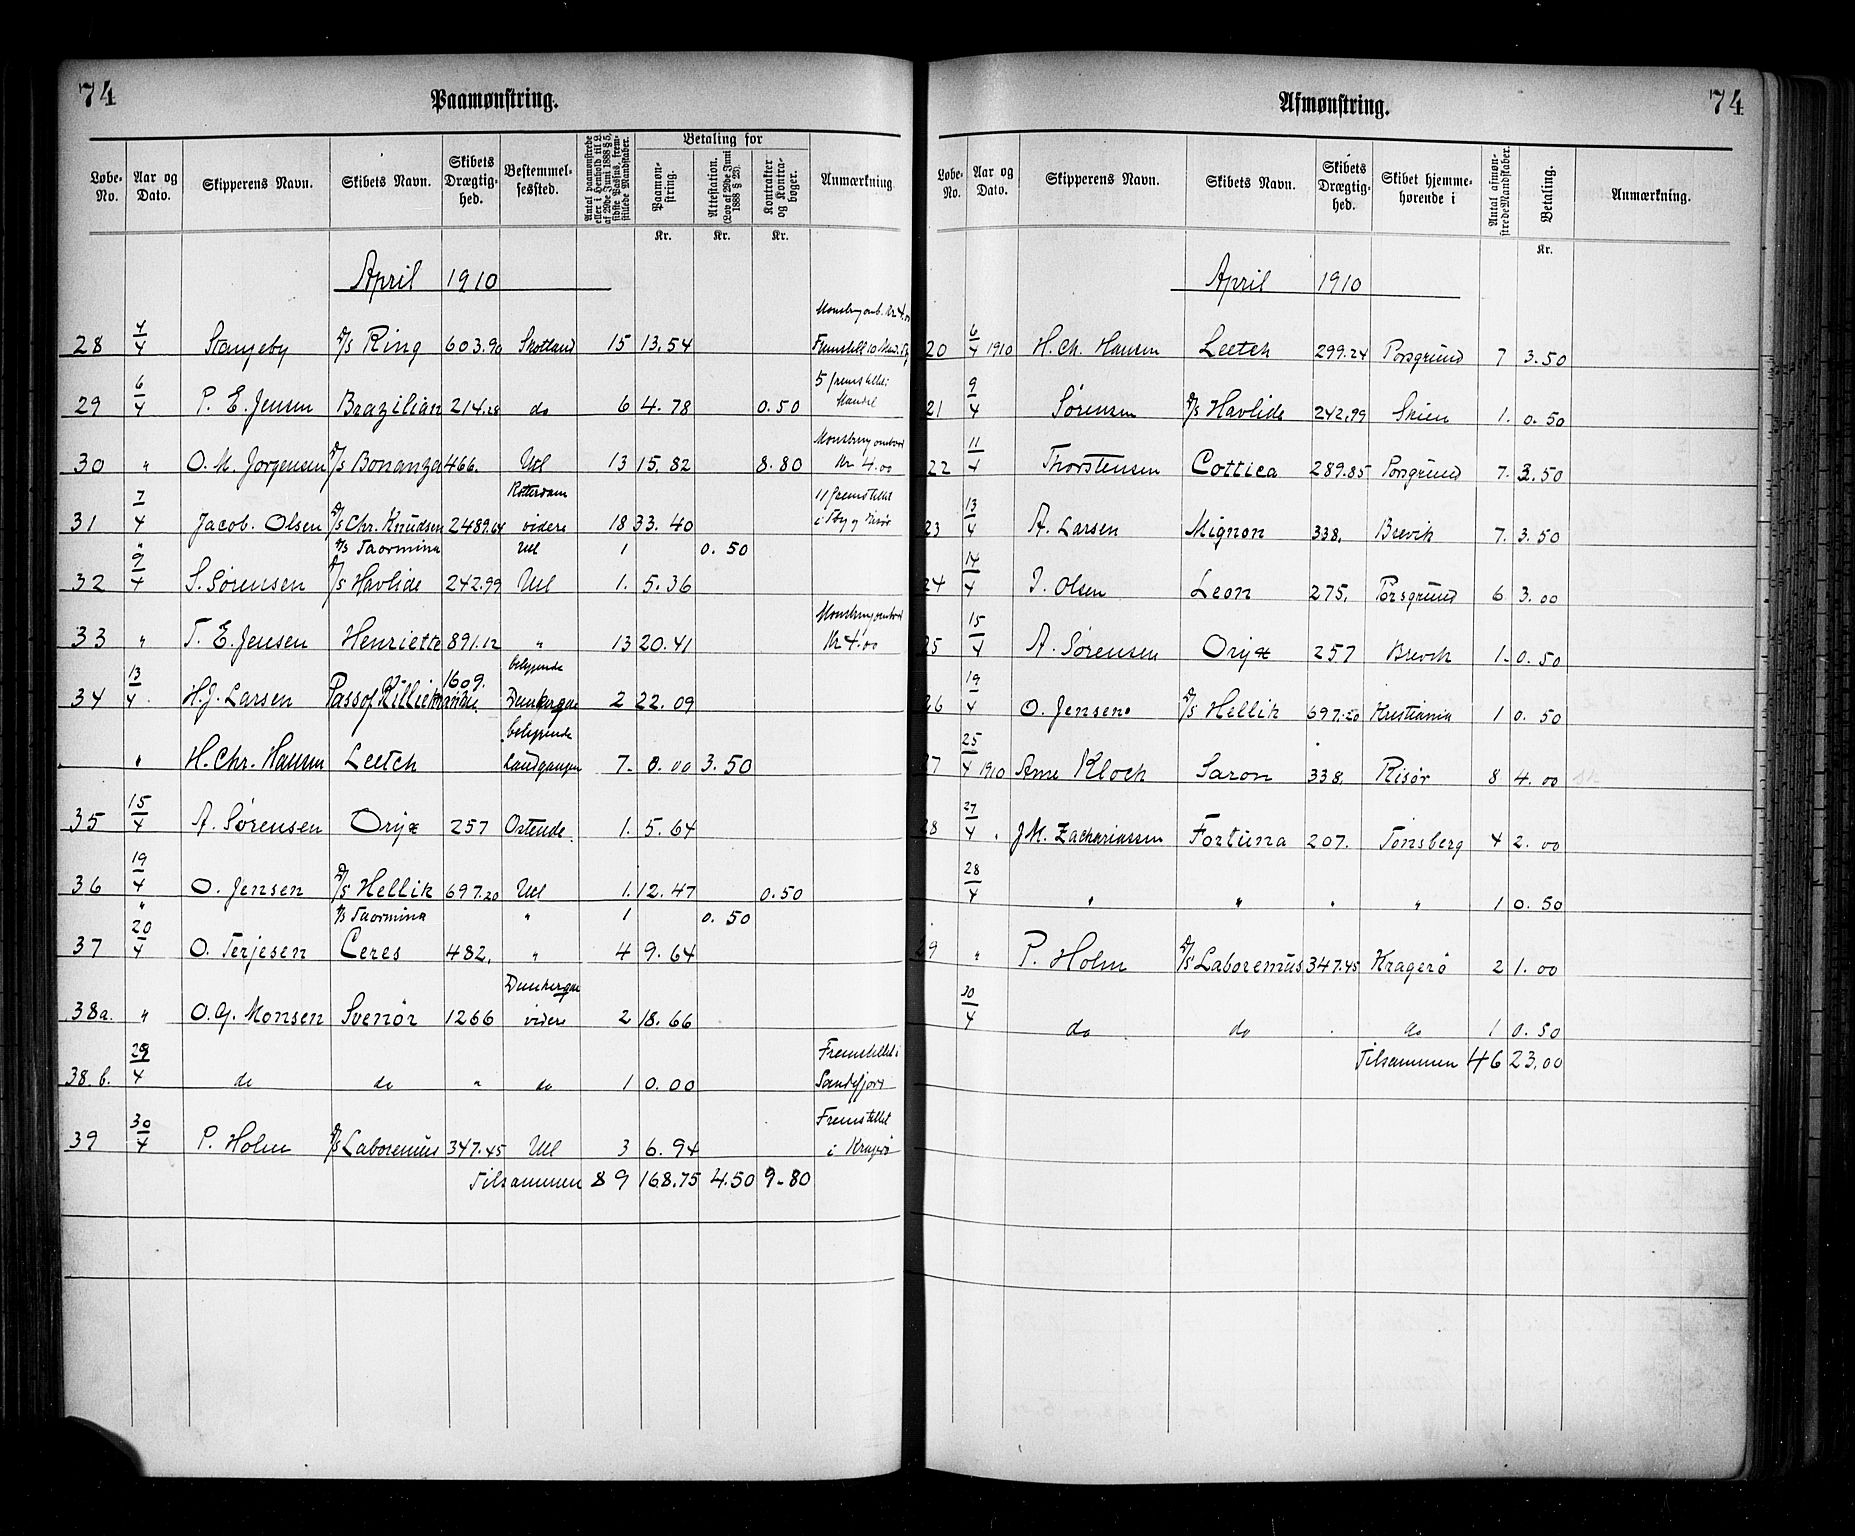 74
Paamønstring.
Løbe-No. | Aar og Dato. | Skipperens Navn. | Skibets Navn. | Skibets Drægtighed. | Bestemmelsessted. | Antal paamønstrede eller i Henhold til L. af 29de Juni 1888 § 5, sidste Passus, fremstillede Mandskaber. | Betaling for | Paamønstring. Kr. | Attestation. (Lov af 29de Juni 1888 § 23). Kr. | Kontrakter og Kontrabøger. Kr. | Anmærkning
April 1910
28 | 4/4 | Stangeby | D/S Ring | 603.90 | Skotland | 15 | 13.54 | Mønstring omb. Kr 4.00 Fremstillt 10 Mand
29 | 6/4 | P. E. Jensen | Brazilian | 214.28 | do | 6 | 4.78 | 0.50 | 5 fremstillet
30 | " | O. M. Jorgensen | D/S Bonanza | 466. | Uel | 13 | 15.82 | 8.80 | Mønstring ombord Kr 4.00
31 | 7/4 | Jacob. Olsen | D/S Chr. Knudsen | 2489.64 | Rotterdam videre | 18 | 33.40 | 11 fremstillet i
" | D/S Taormina | Uel | 1 | 0.50
32 | 9/4 | S. Sørensen | D/S Havlide | 242.99 | Uel | 1. | 5.36
33 | " | T. E. Jensen | Henriette | 891.12 | " | 13 | 20.41 | Mønstring ombord Kr 4.00
34 | 13/4 | H. J. Larsen | Pass of | 1609. | Dunkerque | 2 | 22.09
" | H. Chr. Hansen | Leetch | Landgangen | 7. | 0.00 | 3.50
35 | 15/4 | A. Sørensen | Oryx | 257 | Ostende. | 1. | 5.64
36 | 19/4 | O. Jensen | D/S Hellik | 697.20 | Uel | 1. | 12.47 | 0.50
" | D/S Taormina | " | 1 | 0.50
37 | 20/4 | O. Terjesen | Ceres | 482. | " | 4 | 9.64
38a. | " | O. G. Monsen | Svenör | 1266 | Dunkerque videre | 2 | 18.66
38.b. | 29/4 | do | do | " | do | 1 | 0.00 | Fremstillet i Sandefjord
39 | 30/4 | P. Holm | D/S Laboremus | 347.45 | Uel | 3 | 6.94 | Fremstillet i Kragerø
Tilsammen 89 | 168.75 | 4.50 | 9.80
74
Afmønstring.
Løbe-No. | Aar og Dato. | Skipperens Navn. | Skibets Navn. | Skibets Drægtighed. | Skibet hjemmehørende i | Antal afmønstrede Mandskaber. | Betaling. Kr. | Anmærkning.
April 1910
20 | 6/4 1910 | H. Ch. Hansen | Leetch | 299.24 | Porsgrund | 7 | 3.50
21 | 9/4 | Sørensen | D/S Havlide | 242.99 | Skien | 1. | 0.50
22 | 11/4 | Thorstensen | Cottica | 289.85 | Porsgrund | 7. | 3.50
23 | 13/4 | A. Larsen | Mignon | 338. | Brevik | 7. | 3.50
24 | 14/4 | J. Olsen | Leon | 275. | Porsgrund | 6 | 3.00
25 | 15/4 | A. Sørensen | Oryx | 257 | Brevik | 1. | 0.50
26 | 19/4 | O. Jensen. | D/S Hellik | 697.20 | Kristiania | 1 | 0.50
27 | 25/4 1910 | Arne Kloch | Saron | 338. | Risør | 8 | 4.00
28 | 27/4 | J M. Zachariassen | Fortuna | 207. | Tønsberg | 4 | 2.00
28/4 | " | " | " | " | 1 | 0.50
29 | " | P. Holm | D/S Laboremus | 347.45 | Kragerø | 2 | 1.00
30/4 | do | do | . | do | 1 | 0.50
Tilsammen 46 | 23.00